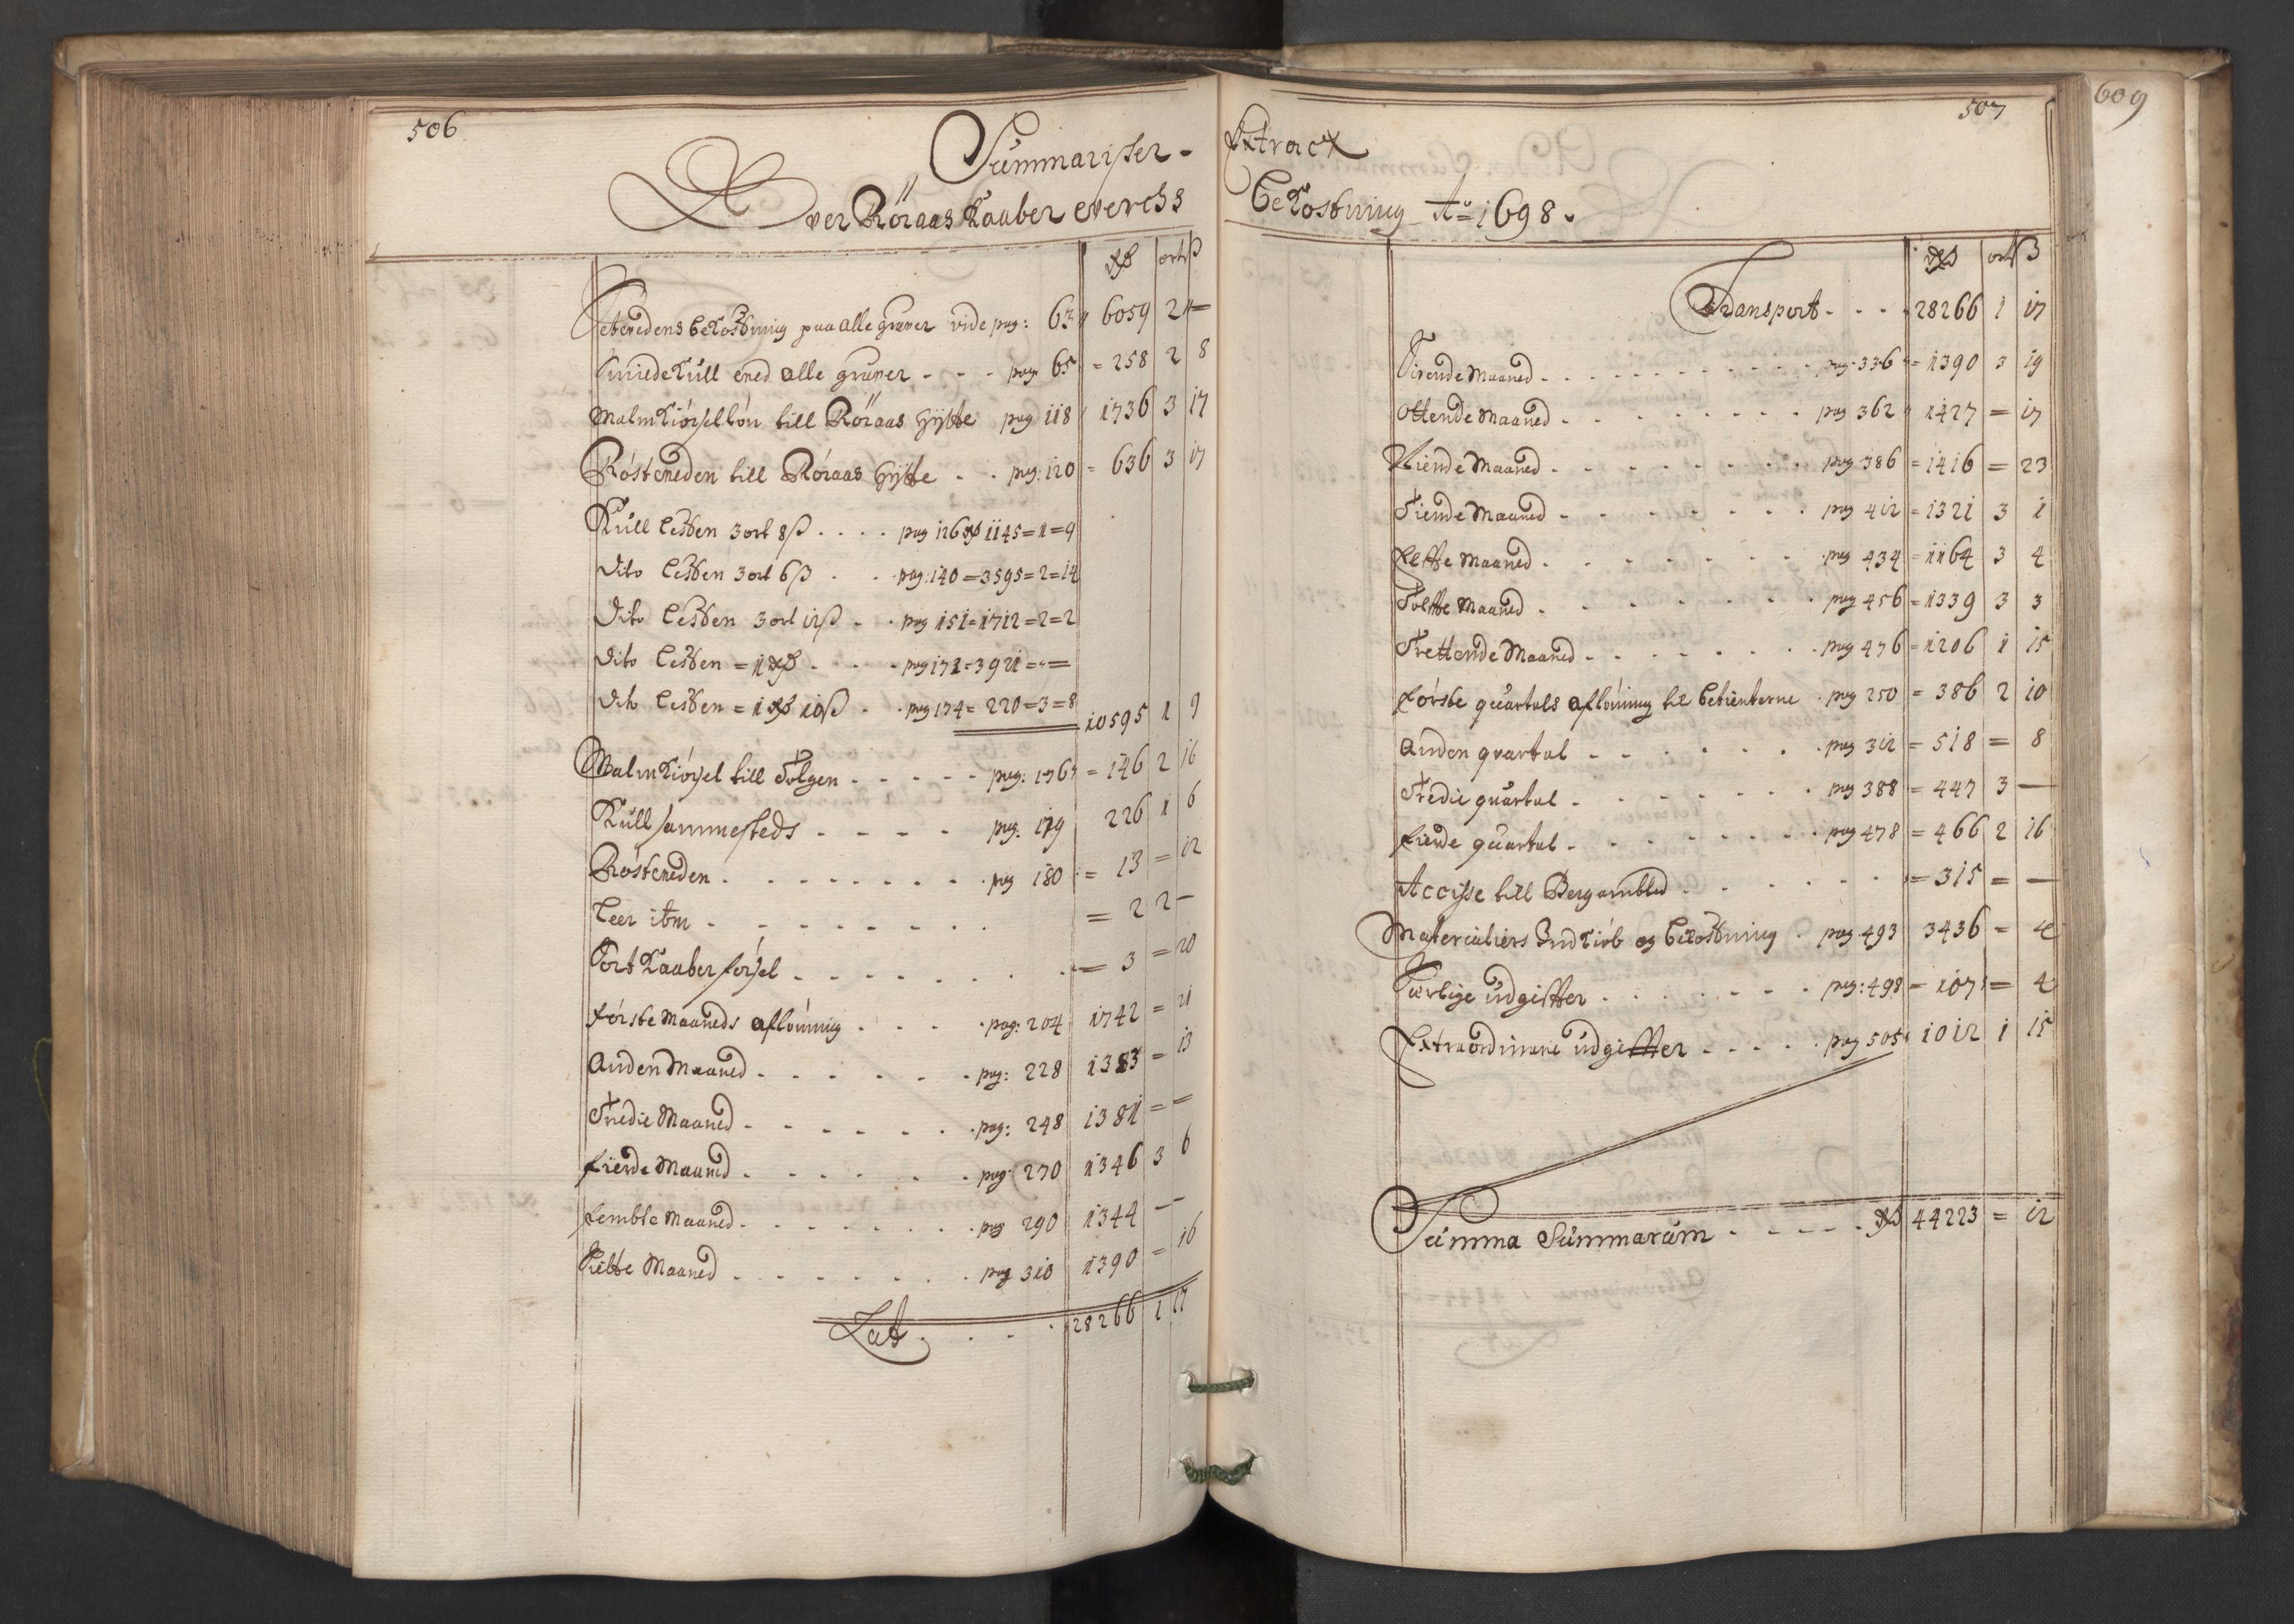 506
Summarisher-
Over Röraas Kaaber Werchs
rdr ort ß
Setevedens bekostning paa alle gruver vide pag: 63 6059 2 —
Smiedekull med alle gruver - - - pag 65 = 258 2 8
Malmkiörsel lön till Röraas Hÿtte pag 118 1736 3 17
Röstveden till Röraas Hÿtte - - pag: 120 = 636 3 17
Kull Lesten 3 ort 8 ß . . . . pag 126 rdr 1145=1=9
Dito Lesten 3 ort 6 ß . . . pag: 140 = 3595=2=14
Dito Lesten 3 ort 12 ß - . pag 151=1712=2=2
Dito Lesten = 1 rdr . - - - pag 171=3921=-=
Dito Lesten = 1 rdr 10 ß - . pag 174= 220=3=8
10595 1 9
Malmkiörsel till Tolgen - - - - - pag: 176 = 146 2 16
Kull sammesteds - - - - pag: 179 226 1 6
Röstveden . - - - - - - - pag 180 = 13 = 12
Leer itm - - - - - - - . = 2 2 —
Sort Kaaber försel - - - - - - . . = 3 = 20
Förste Maaneds aflönning . - - - pag: 204 1742 = 21
Anden Maaned - - - - - - pag: 228 1383 = 13
Tredie Maaned - - - - - - . pag: 248 1381 = =
Fierde Maaned - - - - - - pag 270 1346 3 6
Fembte Maaned - - - - - - - pag 290 1344 —
Siette Maaned - - - - - - - pag 310 1390 = 16
Lat . . - - 28266 1 17
507
609
Extract
Bekostning Ao 1698.
rdr ort ß
Transport - - - 28266 1 17
Sivende Maaned - - - - - - - - pag 336 = 1390 3 19
Ottende Maaned - - - - - - - pag 362 1427 = 17
Niende Maaned - - - - - - - - pag 386 = 1416 = 23
Tiende Maaned - - - - - - - . pag 412 = 1321 3 1
Elfte Maaned - - - - - - - . pag 434 = 1164 3 4
Tolfte Maaned - - - - - - - . pag 456 = 1339 3 3
Trettende Maaned - - - - - - . pag 476 = 1206 1 15
Förste quartals aflönning til betienterne . pag 250 = 386 2 10
Anden qvartal - - - - - - . pag 312 = 518 = 8
Tredie quartal - - - - - - . pag 388 = 447 3 —
Fierde quartal - - - - - - . pag 478 = 466 2 16
Accisse till Bergambted - - - - - - = 315 = —
Materialiers Indkiöb og bekostning . pag 493 3436 = 4
Særlige udgifter . - - - - - - pag: 498 = 107 = 4
Extraordinarie udgifter - - - - . pag 505 1012 1 15
Summa Summarum - - - - - rdr 44223 = 12